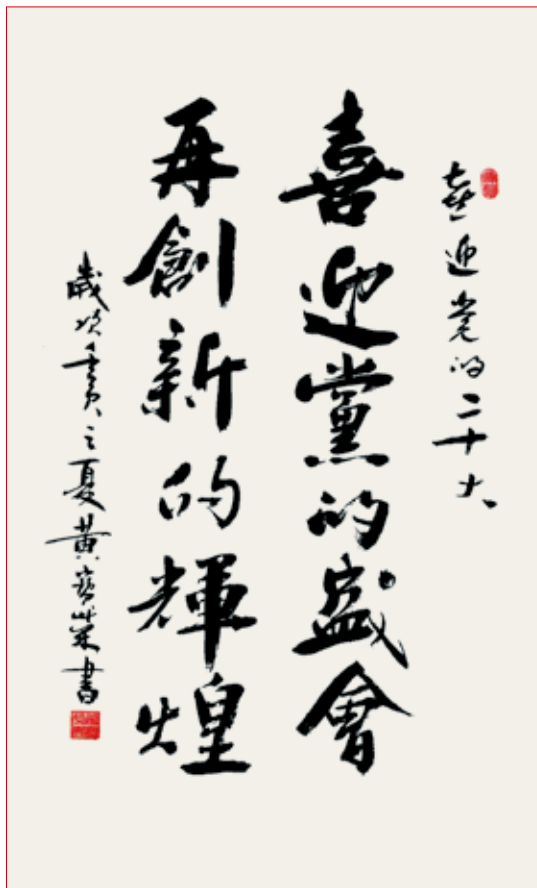 喜迎党的二十大
喜迎黨的盛會
再創新的輝煌
歲次壬寅之夏黃家榮書